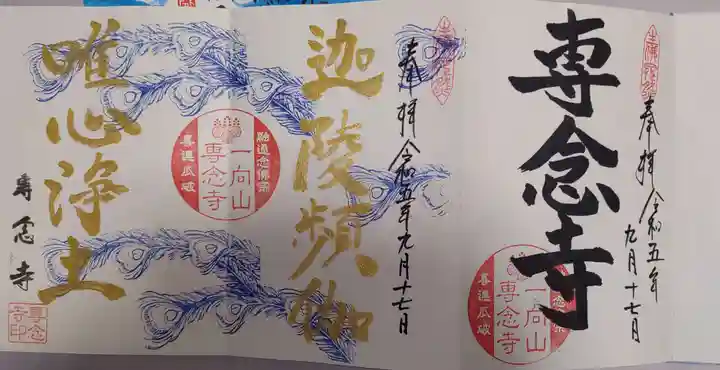 奉拝 令和五年
九月十七日
専念寺
融通念佛宗
一向山
専念寺
喜連瓜破
奉拝 令和五年九月十七日
迦陵頻伽
融通念佛宗
一向山
専念寺
喜連瓜破
唯心浄土
専念寺
専念
寺印